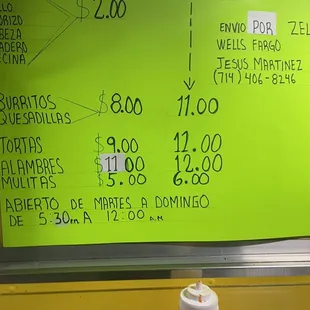 LLO.
$2.00
ORIZO
BEZA
ADERO
ECINA
ENVIO POR ZEL
WELLS FARGO
JESUS MARTINEZ
(714) 406-8246
BURRITOS $8.00 11.00
QUESADILLAS
TORTAS $9.00 12.00
ALAMBRES $11.00 12.00
MULITAS $5.00 6.00
ABIERTO DE MARTES A DOMINGO
DE 5:30PM A 12:00 A.M